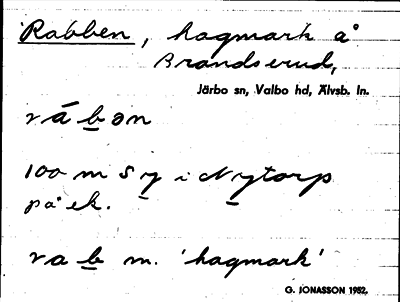 Rabben, hagmark å
Brandserud,
Järbo sn, Valbo hd, Älvsb. ln.
rábən
100 m S y i Nytorp
på ek.
rab m. 'hagmark'
G. JONASSON 1952.